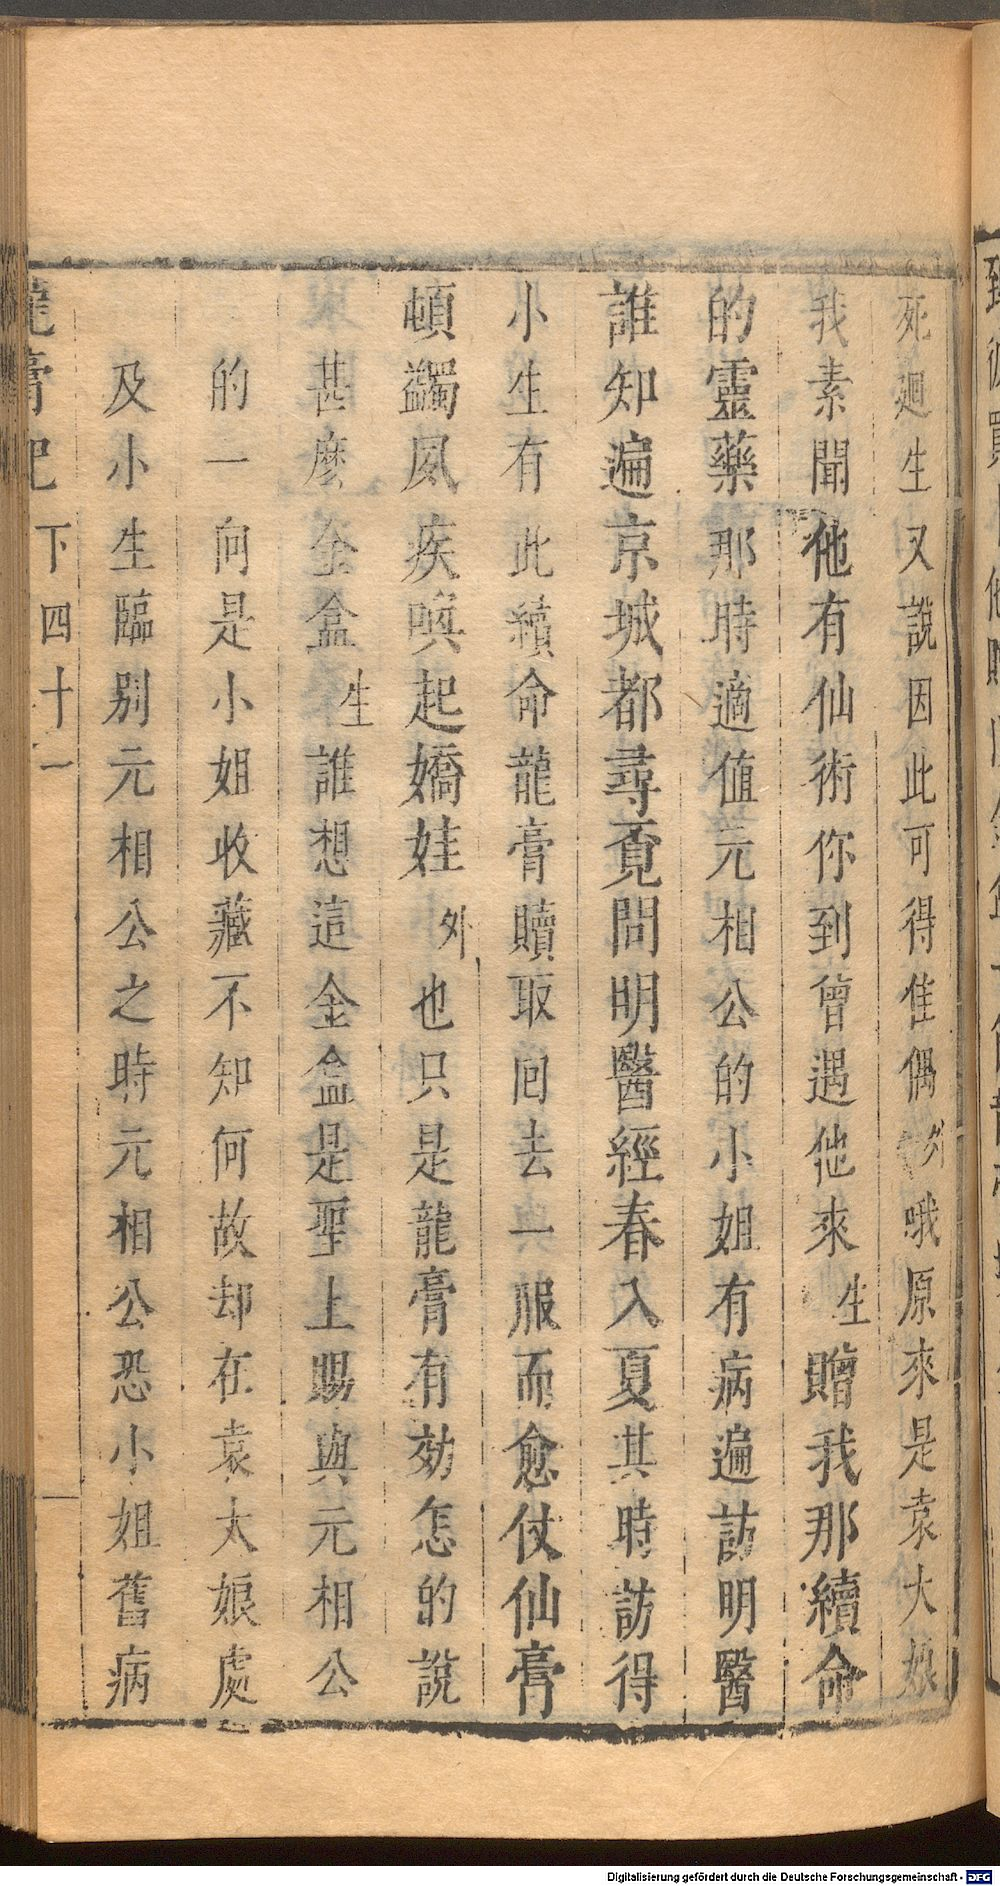 死廻生又說因此可得佳偶外哦原來是袁大娘
我素聞他有仙術你到曾遇他來生贈我那續命
的靈藥那時適值元相公的小姐有病遍訪明醫
誰知遍京城都尋覔問明醫經春入夏其時訪得
小生有此續命龍膏贖取回去一服而愈仗仙膏
頓蠲夙疾喚起嬌娃外也只是龍膏有効怎的說
甚麽金盒生誰想這金盒是聖上賜與元相公
的一向是小姐收藏不知何故却在袁大娘處
及小生臨別元相公之時元相公恐小姐舊病
龍膏記 下四十一
Digitalisierung gefördert durch die Deutsche Forschungsgemeinschaft - DFG